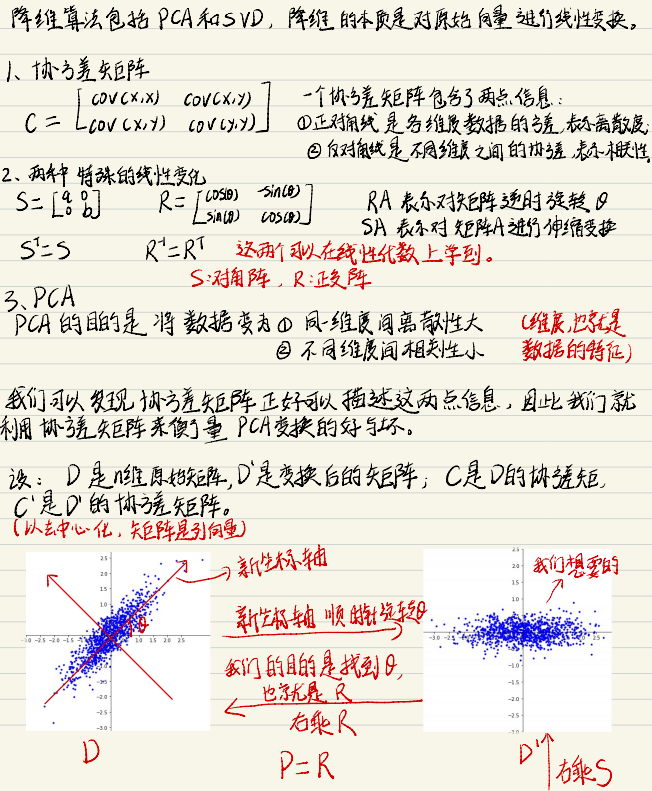 降维算法包括 PCA 和 SVD，降维的本质是对原始向量进行线性变换。
1、协方差矩阵
C = [cov(x,x) cov(x,y)
cov(x,y) cov(y,y)]
一个协方差矩阵包含了两点信息：
①正对角线是各维度数据的方差，表示离散度；
②反对角线是不同维度之间的协方差，表示相关性
2、两种特殊的线性变化
S = [a 0
0 b]
R = [cos(θ) -sin(θ)
sin(θ) cos(θ)]
RA 表示对矩阵逆时旋转 θ
SA 表示对矩阵A进行伸缩变换
Sᵀ=S R⁻¹=Rᵀ 这两个可以在线性代数上学到。
S:对角阵，R:正交阵
3、PCA
PCA 的目的是将数据变为 ① 同一维度间离散性大 （维度，也就是
② 不同维度间相关性小 数据的特征）
我们可以发现协方差矩阵正好可以描述这两点信息，因此我们就
利用协方差矩阵来衡量 PCA变换的好与坏。
设：D 是n维原始矩阵，D'是变换后的矩阵；C是D的协方差矩，
C'是D'的协方差矩阵。
（以去中心化，矩阵是列向量）
新坐标轴
我们想要的
θ
新坐标轴 顺时针旋转θ
我们的目的是找到θ，
也就是 R
右乘R
P=R
D
D'
右乘S
-3.0 -2.5 -2.0 -1.5 -1.0 -0.5
0.5 1.0 1.5 2.0 2.5
2.5
2.0
1.5
1.0
-1.5
-2.0
-2.5
-3.0